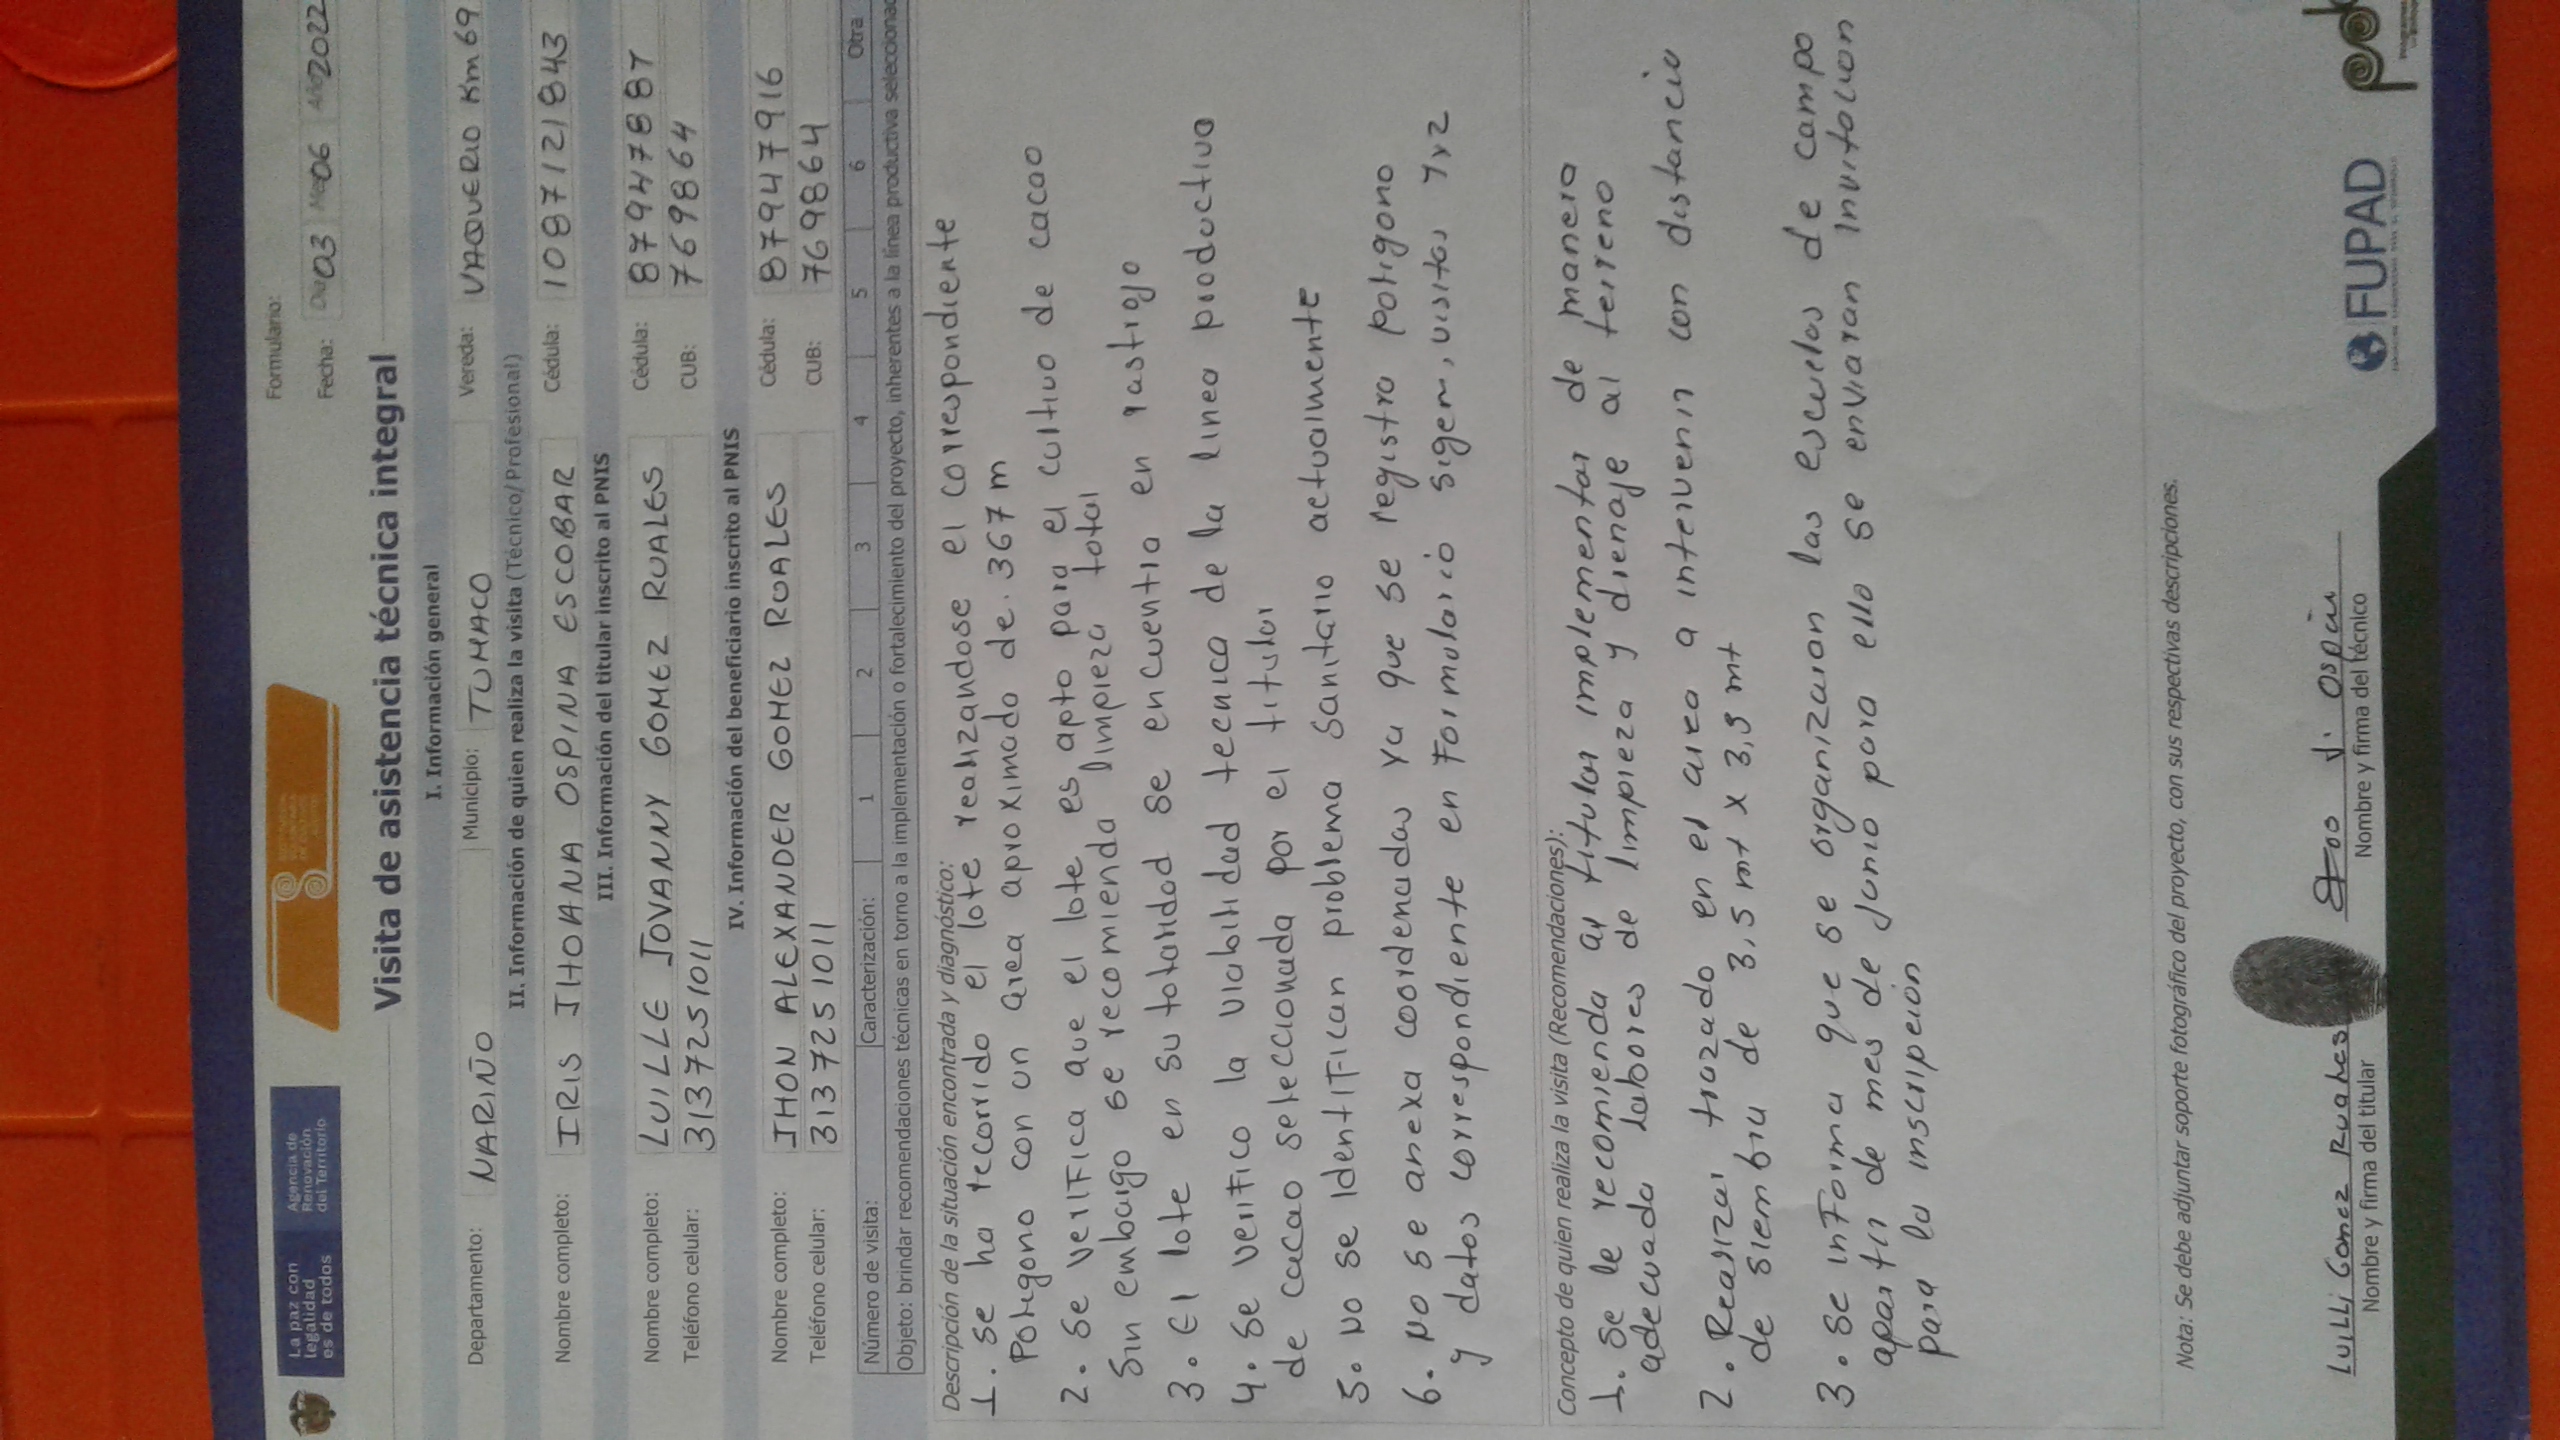 La paz con
legalidad
es de todos
Agencia de
Renovación
del Territorio
Formulario:
Fecha: Dia 03 Mes 06 Año 2022
Visita de asistencia técnica integral
I. Información general
Departamento: NARIÑO Municipio: TUMACO Vereda: VAQUERIO Km 69
II. Información de quien realiza la visita (Técnico/Profesional)
Nombre completo: IRIS JHOANA OSPINA ESCOBAR Cédula: 1087121843
III. Información del titular inscrito al PNIS
Nombre completo: LUILLE JOVANNY GOMEZ RUALES Cédula: 87947887
Teléfono celular: 3137251011 CUB: 769864
IV. Información del beneficiario inscrito al PNIS
Nombre completo: JHON ALEXANDER GOMEZ RUALES Cédula: 87947916
Teléfono celular: 3137251011 CUB: 769864
Número de visita: Caracterización: 1 2 3 4 5 6 Otra
Objeto: brindar recomendaciones técnicas en torno a la implementación o fortalecimiento del proyecto, inherentes a la línea productiva
Descripción de la situación encontrada y diagnóstico:
1. se ha recorrido el lote realizandose el correspondiente
Poligono con un area aproximado de. 367 m
2. Se verifica que el lote es apto para el cultivo de cacao
Sin embargo se recomienda limpieza total
3. El lote en su totalidad se encuentra en rastrojo
4. Se verifico la viabilidad tecnica de la linea productiva
de cacao seleccionada por el titular
5. No se identifican problema sanitario actualmente
6. No se anexa coordenadas ya que se registra poligono
y datos correspondiente en formulario sigem, visitas 1 y 2
Concepto de quien realiza la visita (Recomendaciones):
1. Se le recomienda al titular implementar de manera
adecuada labores de limpieza y drenaje al terreno
2. Realizar trazado en el area a intervenir con distancia
de siembra de 3,5 mt x 3,5 mt
3. Se informa que se organizaran las escuelas de campo
apartir de mes de Junio para ello se enviaran invitacion
para la inscripcion
Nota: Se debe adjuntar soporte fotográfico del proyecto, con sus respectivas descripciones.
Luilli Gomez Ruales
J. Ospina
Nombre y firma del titular
Nombre y firma del técnico
FUPAD